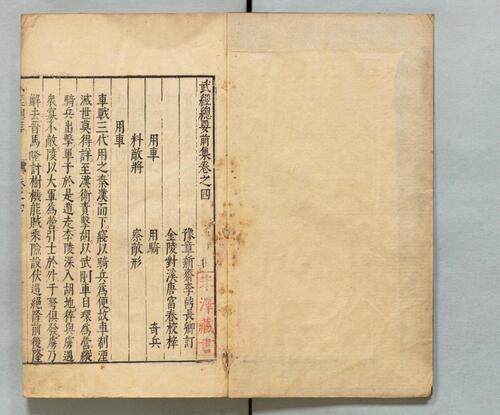 武經總要前集卷之四
豫章新齋李鼎長卿訂
金陵對溪唐富春校梓
用車 用騎 奇兵
料敵將 察敵形
用車
車戰三代用之秦漢而下寖以騎兵為便故車制湮
滅世莫得詳至漢衛青擊胡以武剛車自環為營縱
騎兵出擊單于於是遁走李陵深入胡地猝與虜遇
眾寡不敵陵以大車為營引士於外千弩俱發虜乃
解去晉馬隆討樹機能賊乘險設伏遏絕隆前後隆
藏書